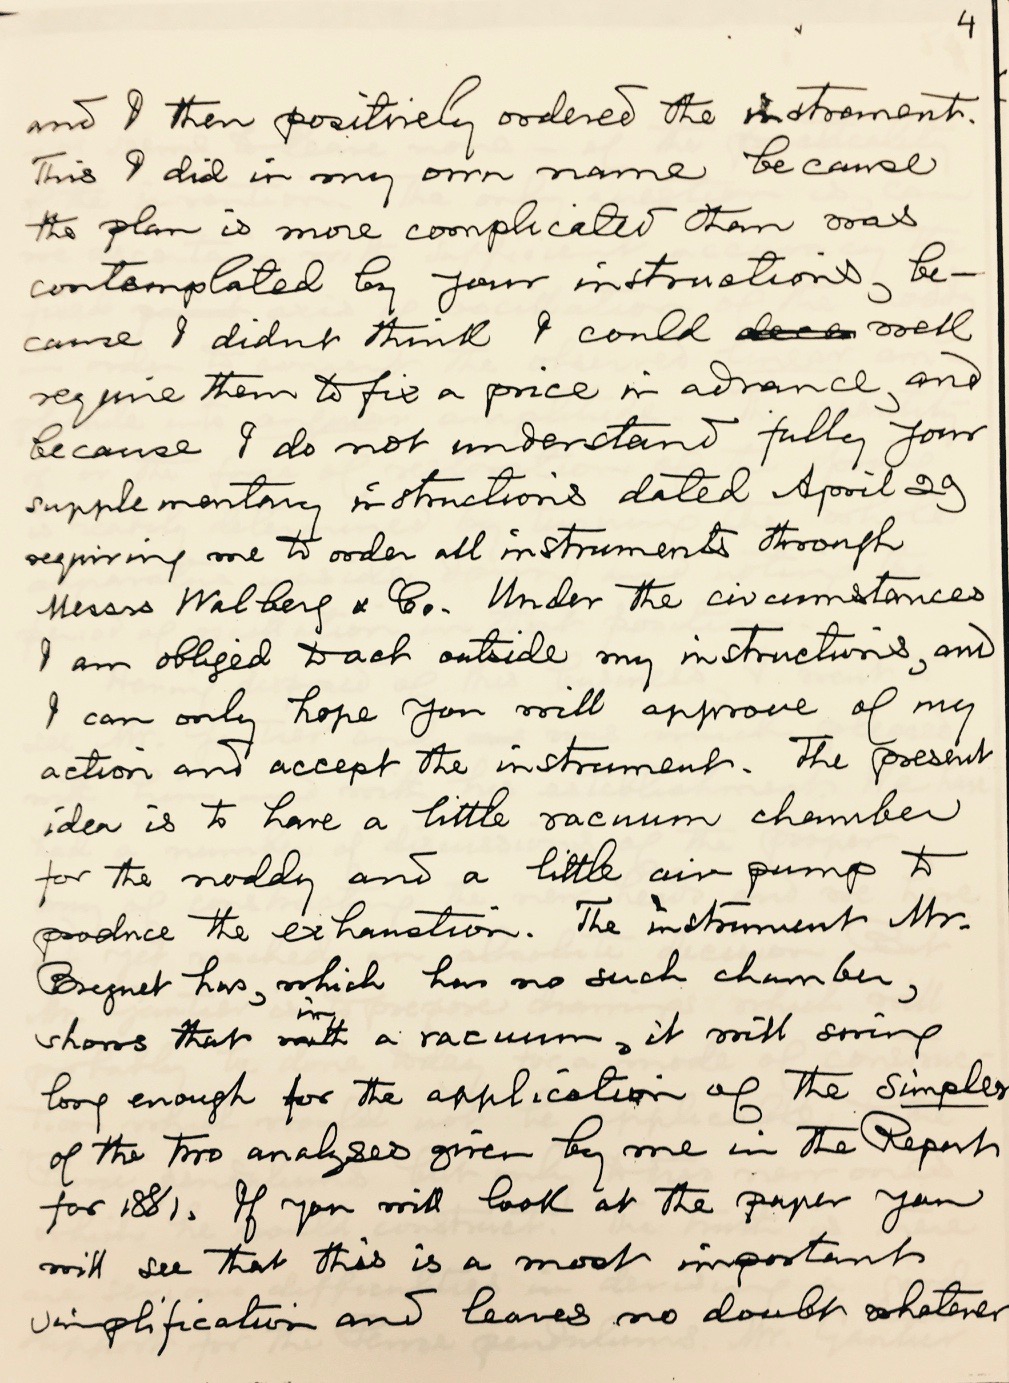 4
and I then positively ordered the instrument.
This I did in my own name because
the plan is more complicated than was
contemplated by your instructions, be-
cause I didnt think I could well
require them to fix a price in advance, and
because I do not understand fully your
supplementary instructions dated April 29
requiring me to order all instruments through
Messrs Walberg & Co. Under the circumstances
I am obliged to act outside my instructions, and
I can only hope you will approve of my
action and accept the instrument. The present
idea is to have a little vacuum chamber
for the noddy and a little air pump to
produce the exhaustion. The instrument Mr.
Breguet has, which has no such chamber,
in
shows that with a vacuum, it will swing
long enough for the application of the simpler
of the two analyses given by me in the Report
for 1881. If you will look at the paper you
will see that this is a most important
simplification and leaves no doubt whatever